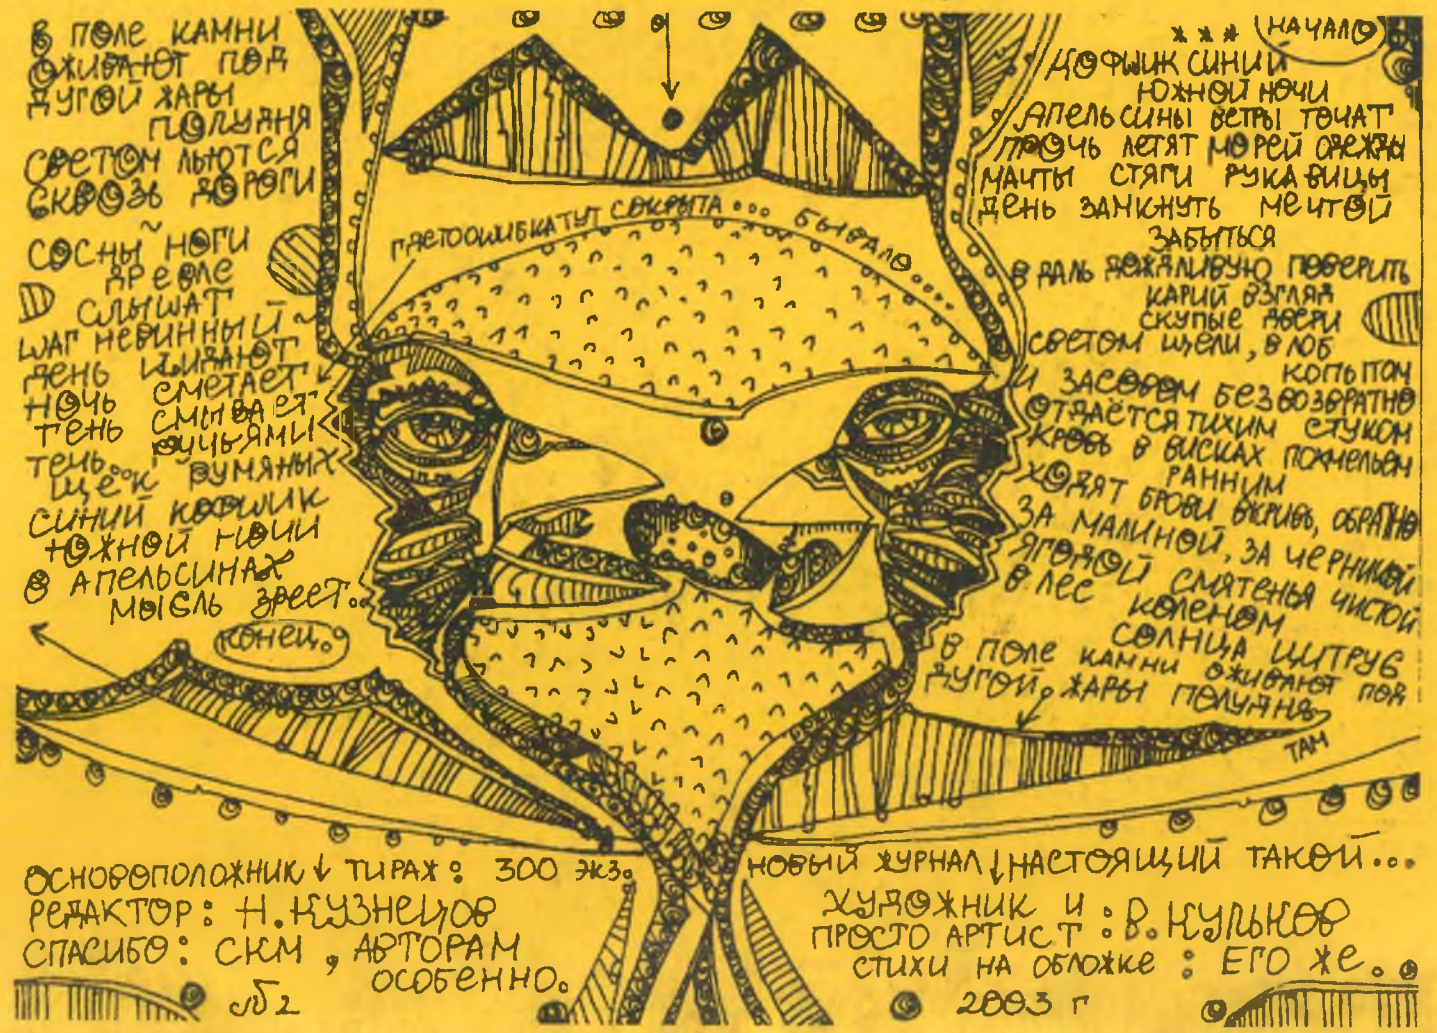 В ПОЛЕ КАМНИ
ОЖИВАЮТ ПОД
ДУГОЙ ЖАРЫ
ПОЛУДНЯ
СВЕТОМ ЛЬЮТСЯ
СКВОЗЬ ДОРОГИ
СОСНЫ НОГИ
ДРЕВЛЕ
СЛЫШАТ
ШАГ НЕВИННЫЙ
ДЕНЬ КИДАЮТ
НОЧЬ СМЕТАЕТ
ТЕНЬ СМЫВАЕТ
РУЧЬЯМИ
ТЕЧЬ...
ЩЁК РУМЯНЫХ
СИНИЙ КОВШИК
ЮЖНОЙ НОЧИ
В АПЕЛЬСИНАХ
МЫСЛЬ ЗРЕЕТ..
КОНЕЦ.
ГДЕТООШИБКАТУТ СОКРЫТА... БЫВАЛО....
НАЧАЛО
* * *
КОВШИК СИНИЙ
ЮЖНОЙ НОЧИ
АПЕЛЬСИНЫ ВЕТРЫ ТОЧАТ
ПРОЧЬ ЛЕТЯТ МОРЕЙ ОДЕЖДЫ
МАЧТЫ СТЯГИ РУКАВИЦЫ
ДЕНЬ ЗАМКНУТЬ МЕЧТОЙ
ЗАБЫТЬСЯ
В ДАЛЬ ДОЖДЛИВУЮ ПОВЕРИТЬ
КАРИЙ ВЗГЛЯД
СКУПЫЕ ДВЕРИ
СВЕТОМ ЩЕЛИ, В ЛОБ
КОПЫТОМ
И ЗАСОВОМ БЕЗВОЗВРАТНО
ОТДАЁТСЯ ТИХИМ СТУКОМ
КРОВЬ В ВИСКАХ ПОХМЕЛЬЕМ
РАННИМ
ХОДЯТ БРОВИ ВКРИВЬ, ОБРАТНО
ЗА МАЛИНОЙ, ЗА ЧЕРНИКОЙ
ЯГОДОЙ СМЯТЕНЬЯ ЧИСТОЙ
В ЛЕС КОЛЕНОМ
СОЛНЦА ЦИТРУС
В ПОЛЕ КАМНИ ОЖИВАЮТ ПОД
ДУГОЙ ЖАРЫ ПОЛУДНЯ
ТАМ
ОСНОВОПОЛОЖНИК ↓ ТИРАЖ: 300 ЭКЗ.
РЕДАКТОР: Н.КУЗНЕЦОВ
СПАСИБО: СКМ, АВТОРАМ
ОСОБЕННО.
№2
НОВЫЙ ЖУРНАЛ ↓ НАСТОЯЩИЙ ТАКОЙ...
ХУДОЖНИК И
ПРОСТО АРТИСТ : В.КУЛЬКОВ
СТИХИ НА ОБЛОЖКЕ : ЕГО ЖЕ.
2003 г